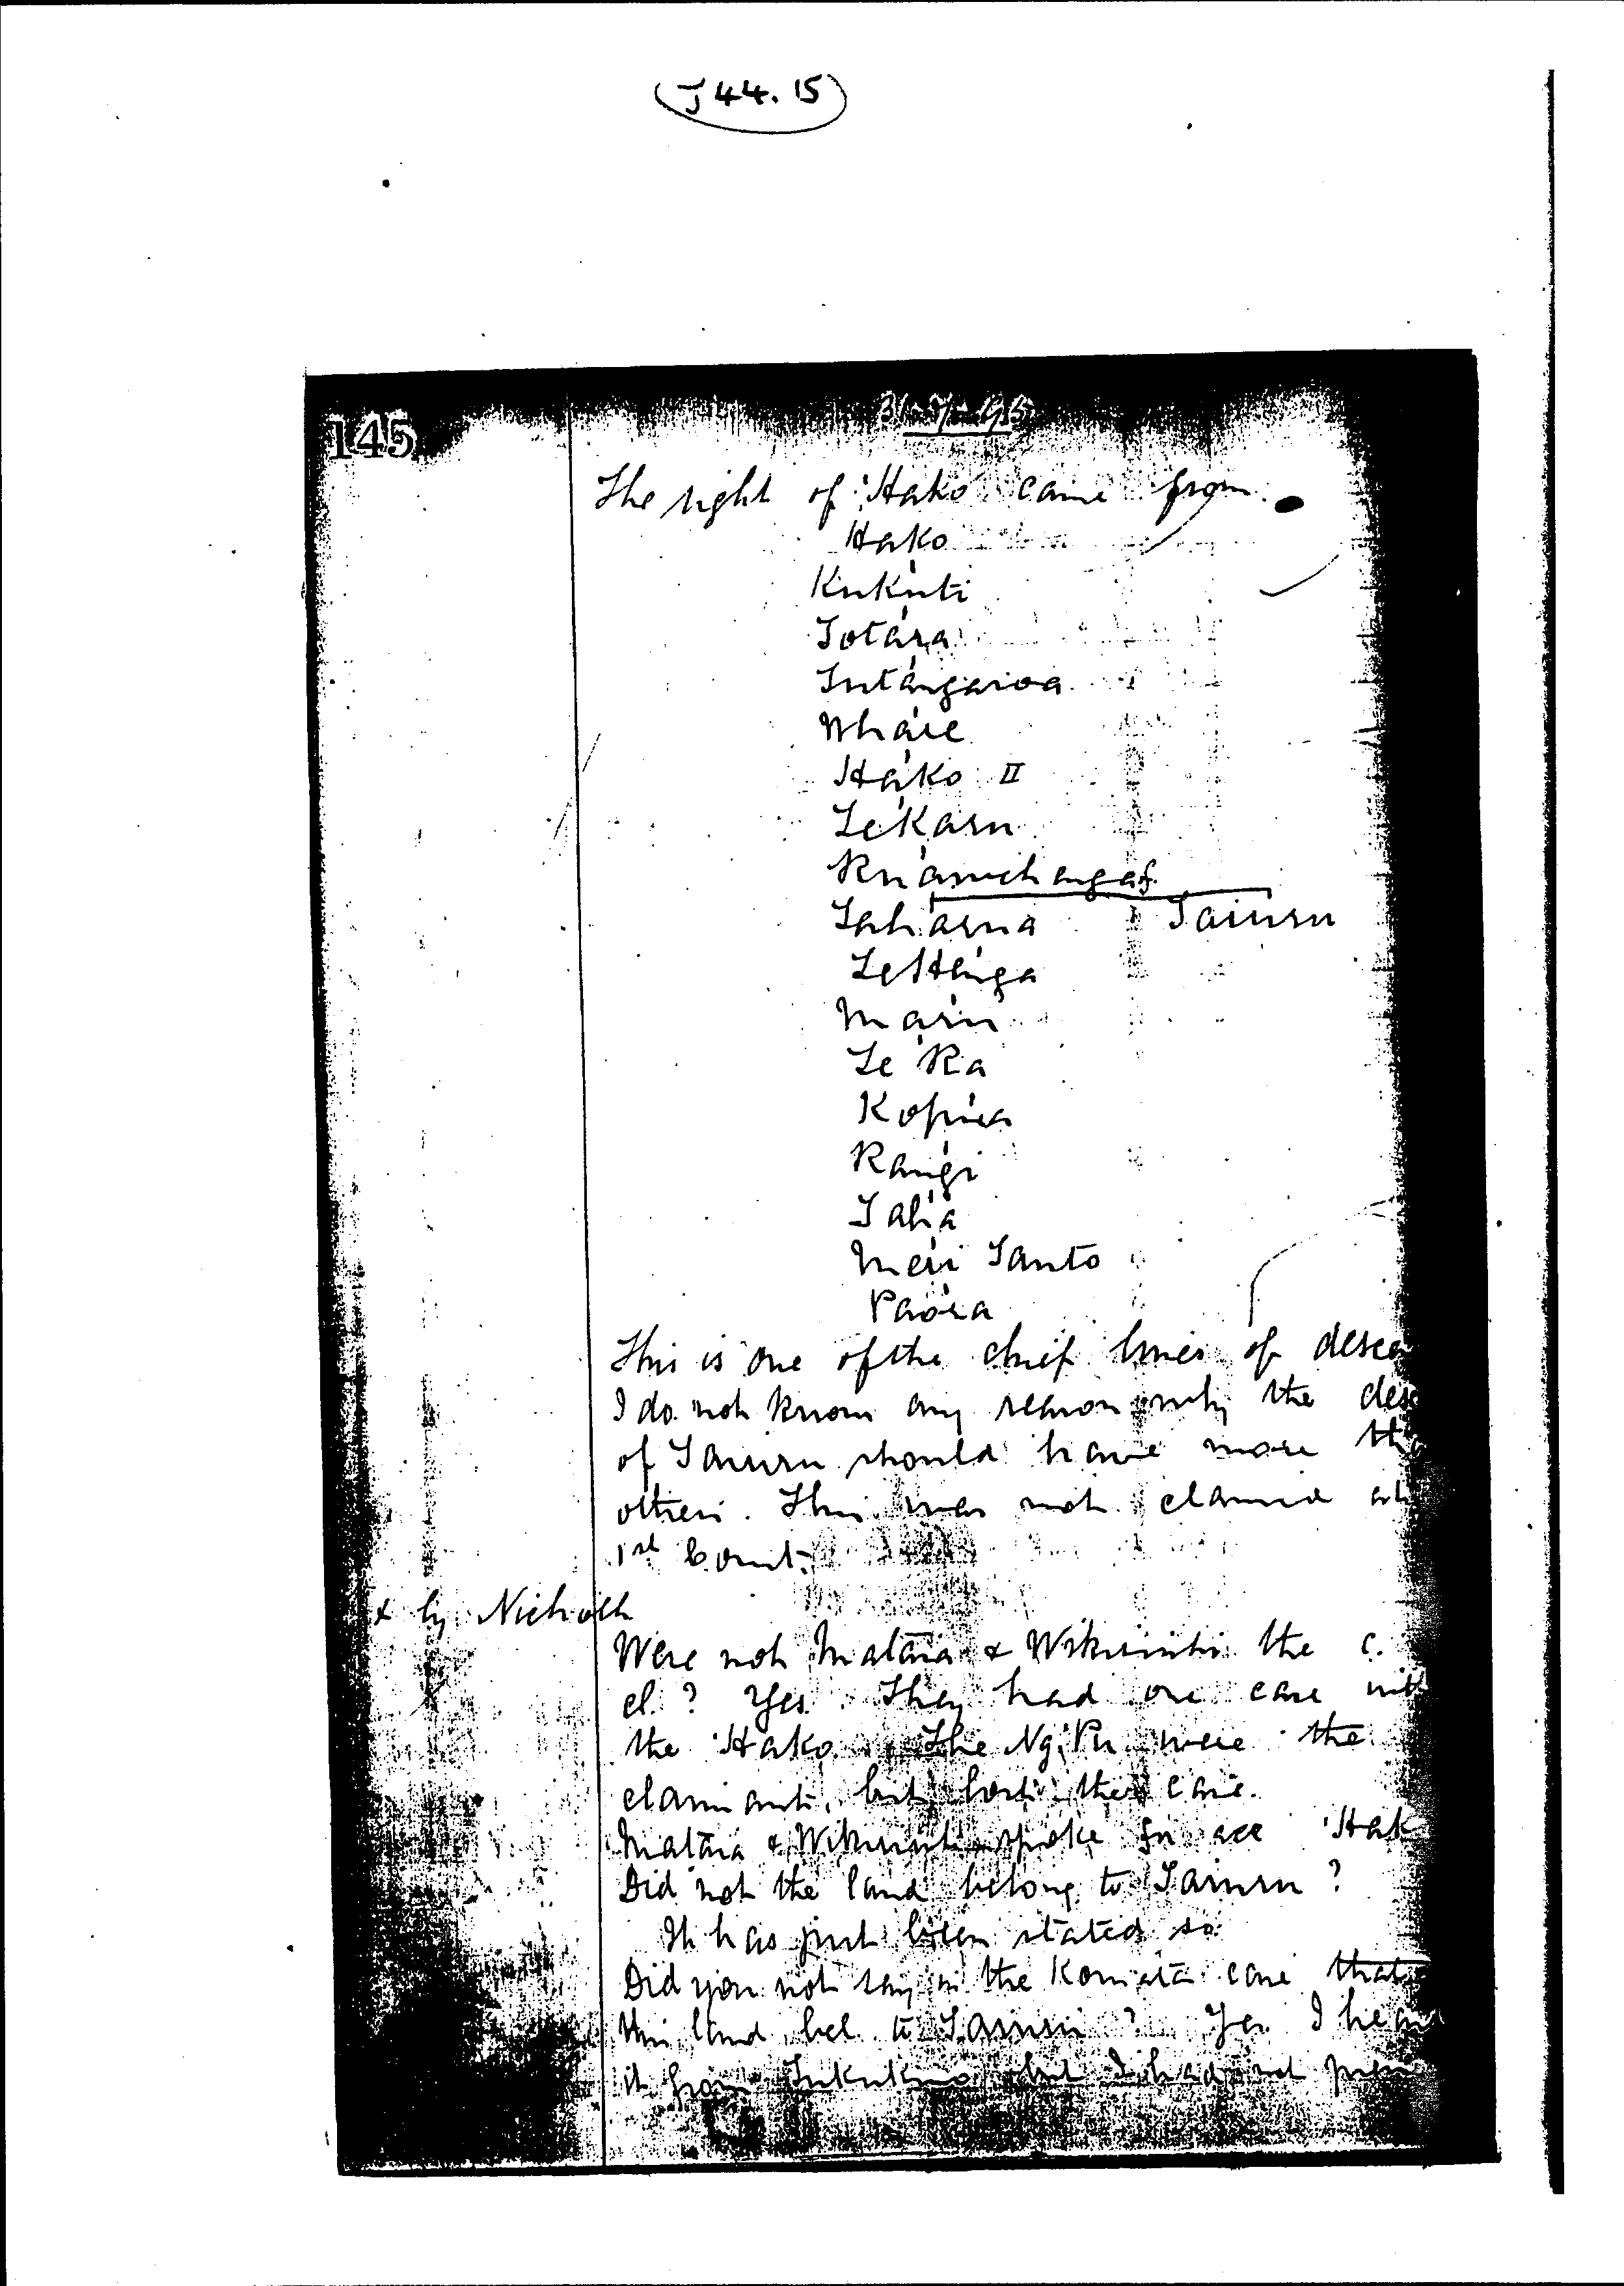 J 44. 15
145
31-7-95
The right of 'Hako came from
Hako
Kukuti
Totara
Tutangaroa
Whare
Hako II
Te Karu
Ruawehangaf.
Taharua Tairuru
Te Henga
Maru
Te Ra
Kopua
Rangi
Tahia
Meri Tauto
Paora
This is one of the chief lines of desce
I do not know any reason why the des
of Tairuru should have more th
others. This was not claimed at
1st Court.
x by Nicholls
Were not Mataia & Wikiriwhi the c.
cl.? Yes. They had one case with
the 'Hako. The Ng. Pu were the
claimants, but lost their case.
Mataia & Wikiriwhi spoke for all 'Hak
Did not the land belong to Tairuru?
It has just been stated so
Did you not say in the Komata case that
this land bel. to Tairuru? Yes I hear
it from Tukukino but I had not